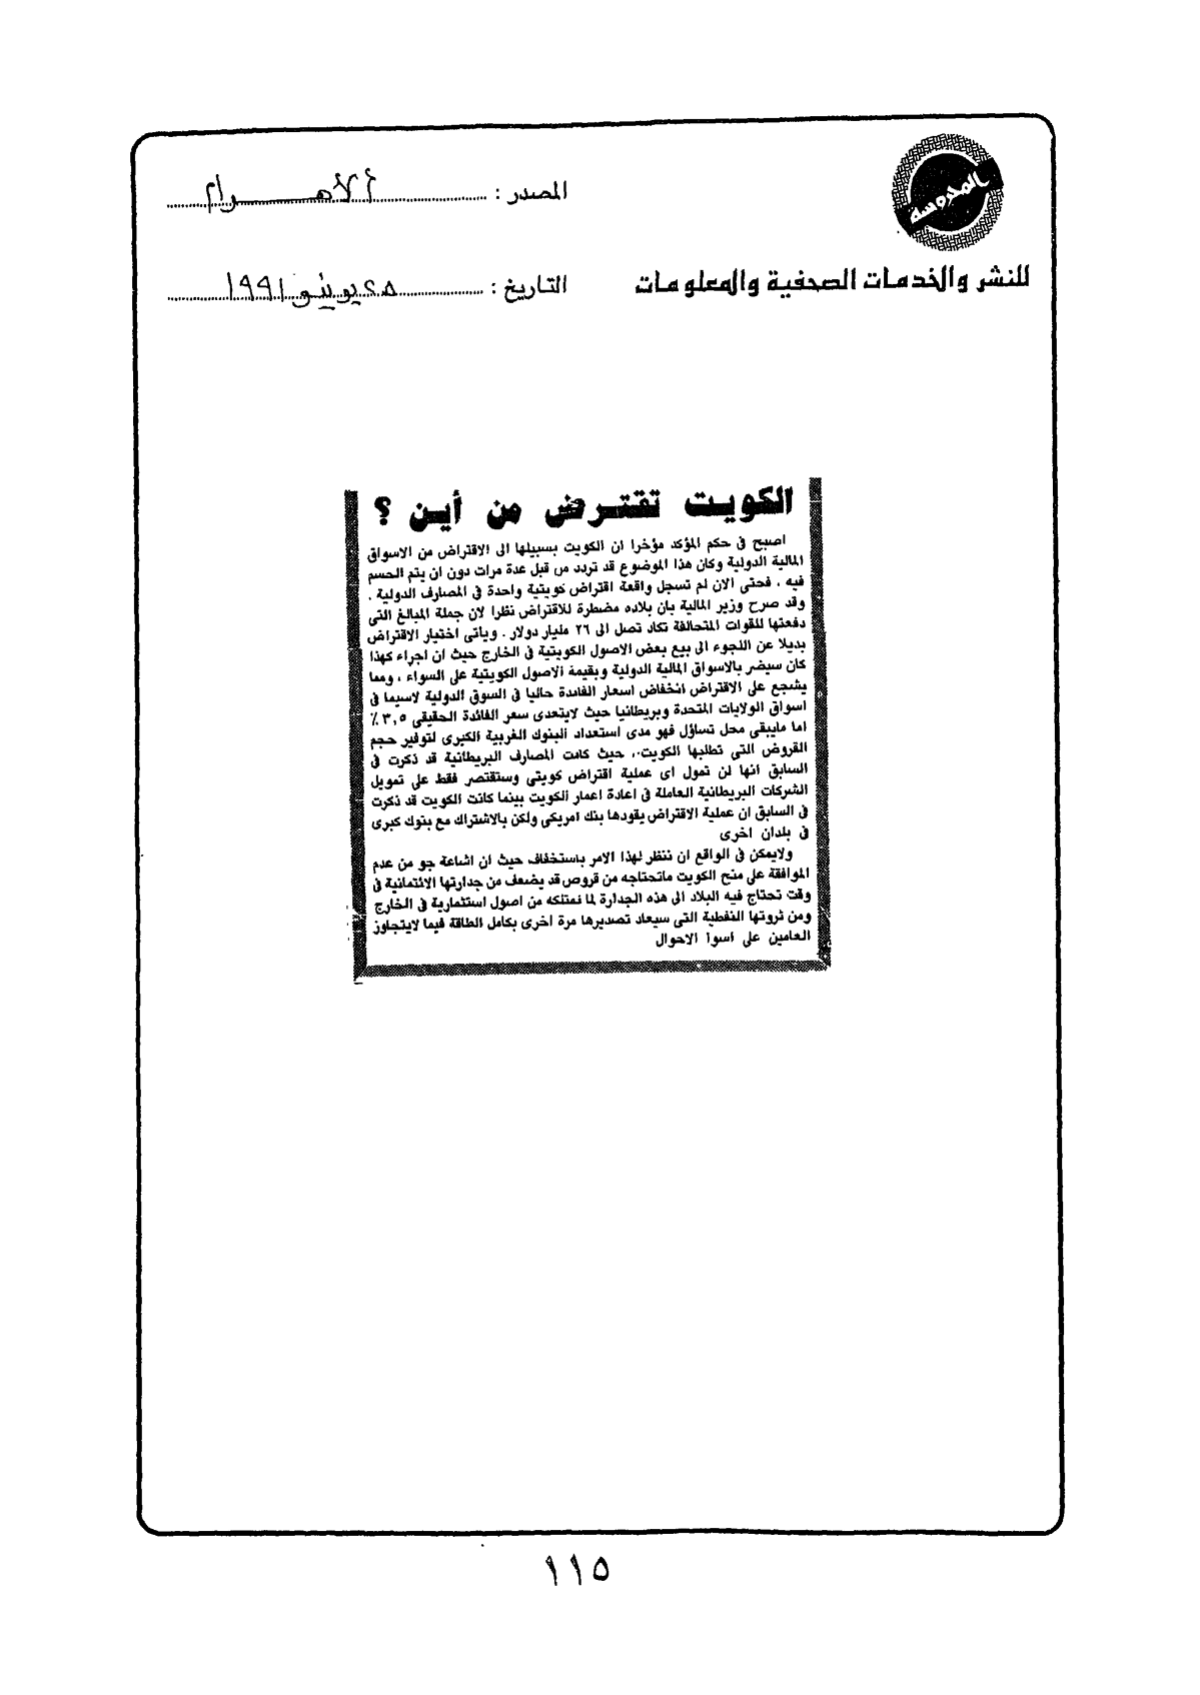 المحروسة
للنشر والخدمات الصحفية والمعلومات
المصدر : الأهرام
التاريخ : ٢٥ يونيو ١٩٩١
الكويت تقترض من أين ؟
اصبح فى حكم المؤكد مؤخرا ان الكويت بسبيلها الى الاقتراض من الاسواق
المالية الدولية وكان هذا الموضوع قد تردد من قبل عدة مرات دون ان يتم الحسم
فيه ، فحتى الان لم تسجل واقعة اقتراض كويتية واحدة فى المصارف الدولية .
وقد صرح وزير المالية بان بلاده مضطرة للاقتراض نظرا لان جملة المبالغ التى
دفعتها للقوات المتحالفة تكاد تصل الى ٢٦ مليار دولار . وياتى اختيار الاقتراض
بديلا عن اللجوء الى بيع بعض الاصول الكويتية فى الخارج حيث ان اجراء كهذا
كان سيضر بالاسواق المالية الدولية وبقيمة الاصول الكويتية على السواء ، ومما
يشجع على الاقتراض انخفاض اسعار الفائدة حاليا فى السوق الدولية لاسيما فى
اسواق الولايات المتحدة وبريطانيا حيث لايتعدى سعر الفائدة الحقيقى ٣,٥ ٪
اما مايبقى محل تساؤل فهو مدى استعداد البنوك الغربية الكبرى لتوفير حجم
القروض التى تطلبها الكويت ، حيث كانت المصارف البريطانية قد ذكرت فى
السابق انها لن تمول اى عملية اقتراض كويتى وستقتصر فقط على تمويل
الشركات البريطانية العاملة فى اعادة اعمار الكويت بينما كانت الكويت قد ذكرت
فى السابق ان عملية الاقتراض يقودها بنك امريكى ولكن بالاشتراك مع بنوك كبرى
فى بلدان اخرى
ولايمكن فى الواقع ان ننظر لهذا الامر باستخفاف حيث ان اشاعة جو من عدم
الموافقة على منح الكويت ماتحتاجه من قروض قد يضعف من جدارتها الائتمانية فى
وقت تحتاج فيه البلاد الى هذه الجدارة لما تمتلكه من اصول استثمارية فى الخارج
ومن ثروتها النفطية التى سيعاد تصديرها مرة اخرى بكامل الطاقة فيما لايتجاوز
العامين على اسوا الاحوال
١١٥